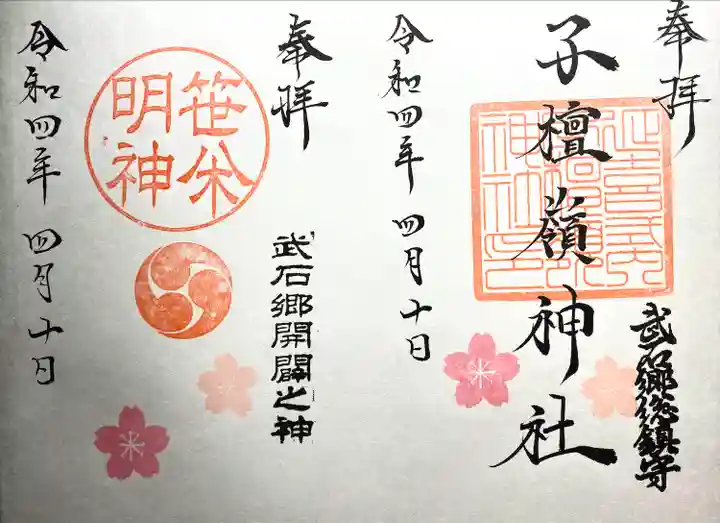 奉拝
武石郷総鎮守
延喜式内
子檀嶺神社
令和四年 四月十日
奉拝
武石郷開闢之神
明神
令和四年 四月十日